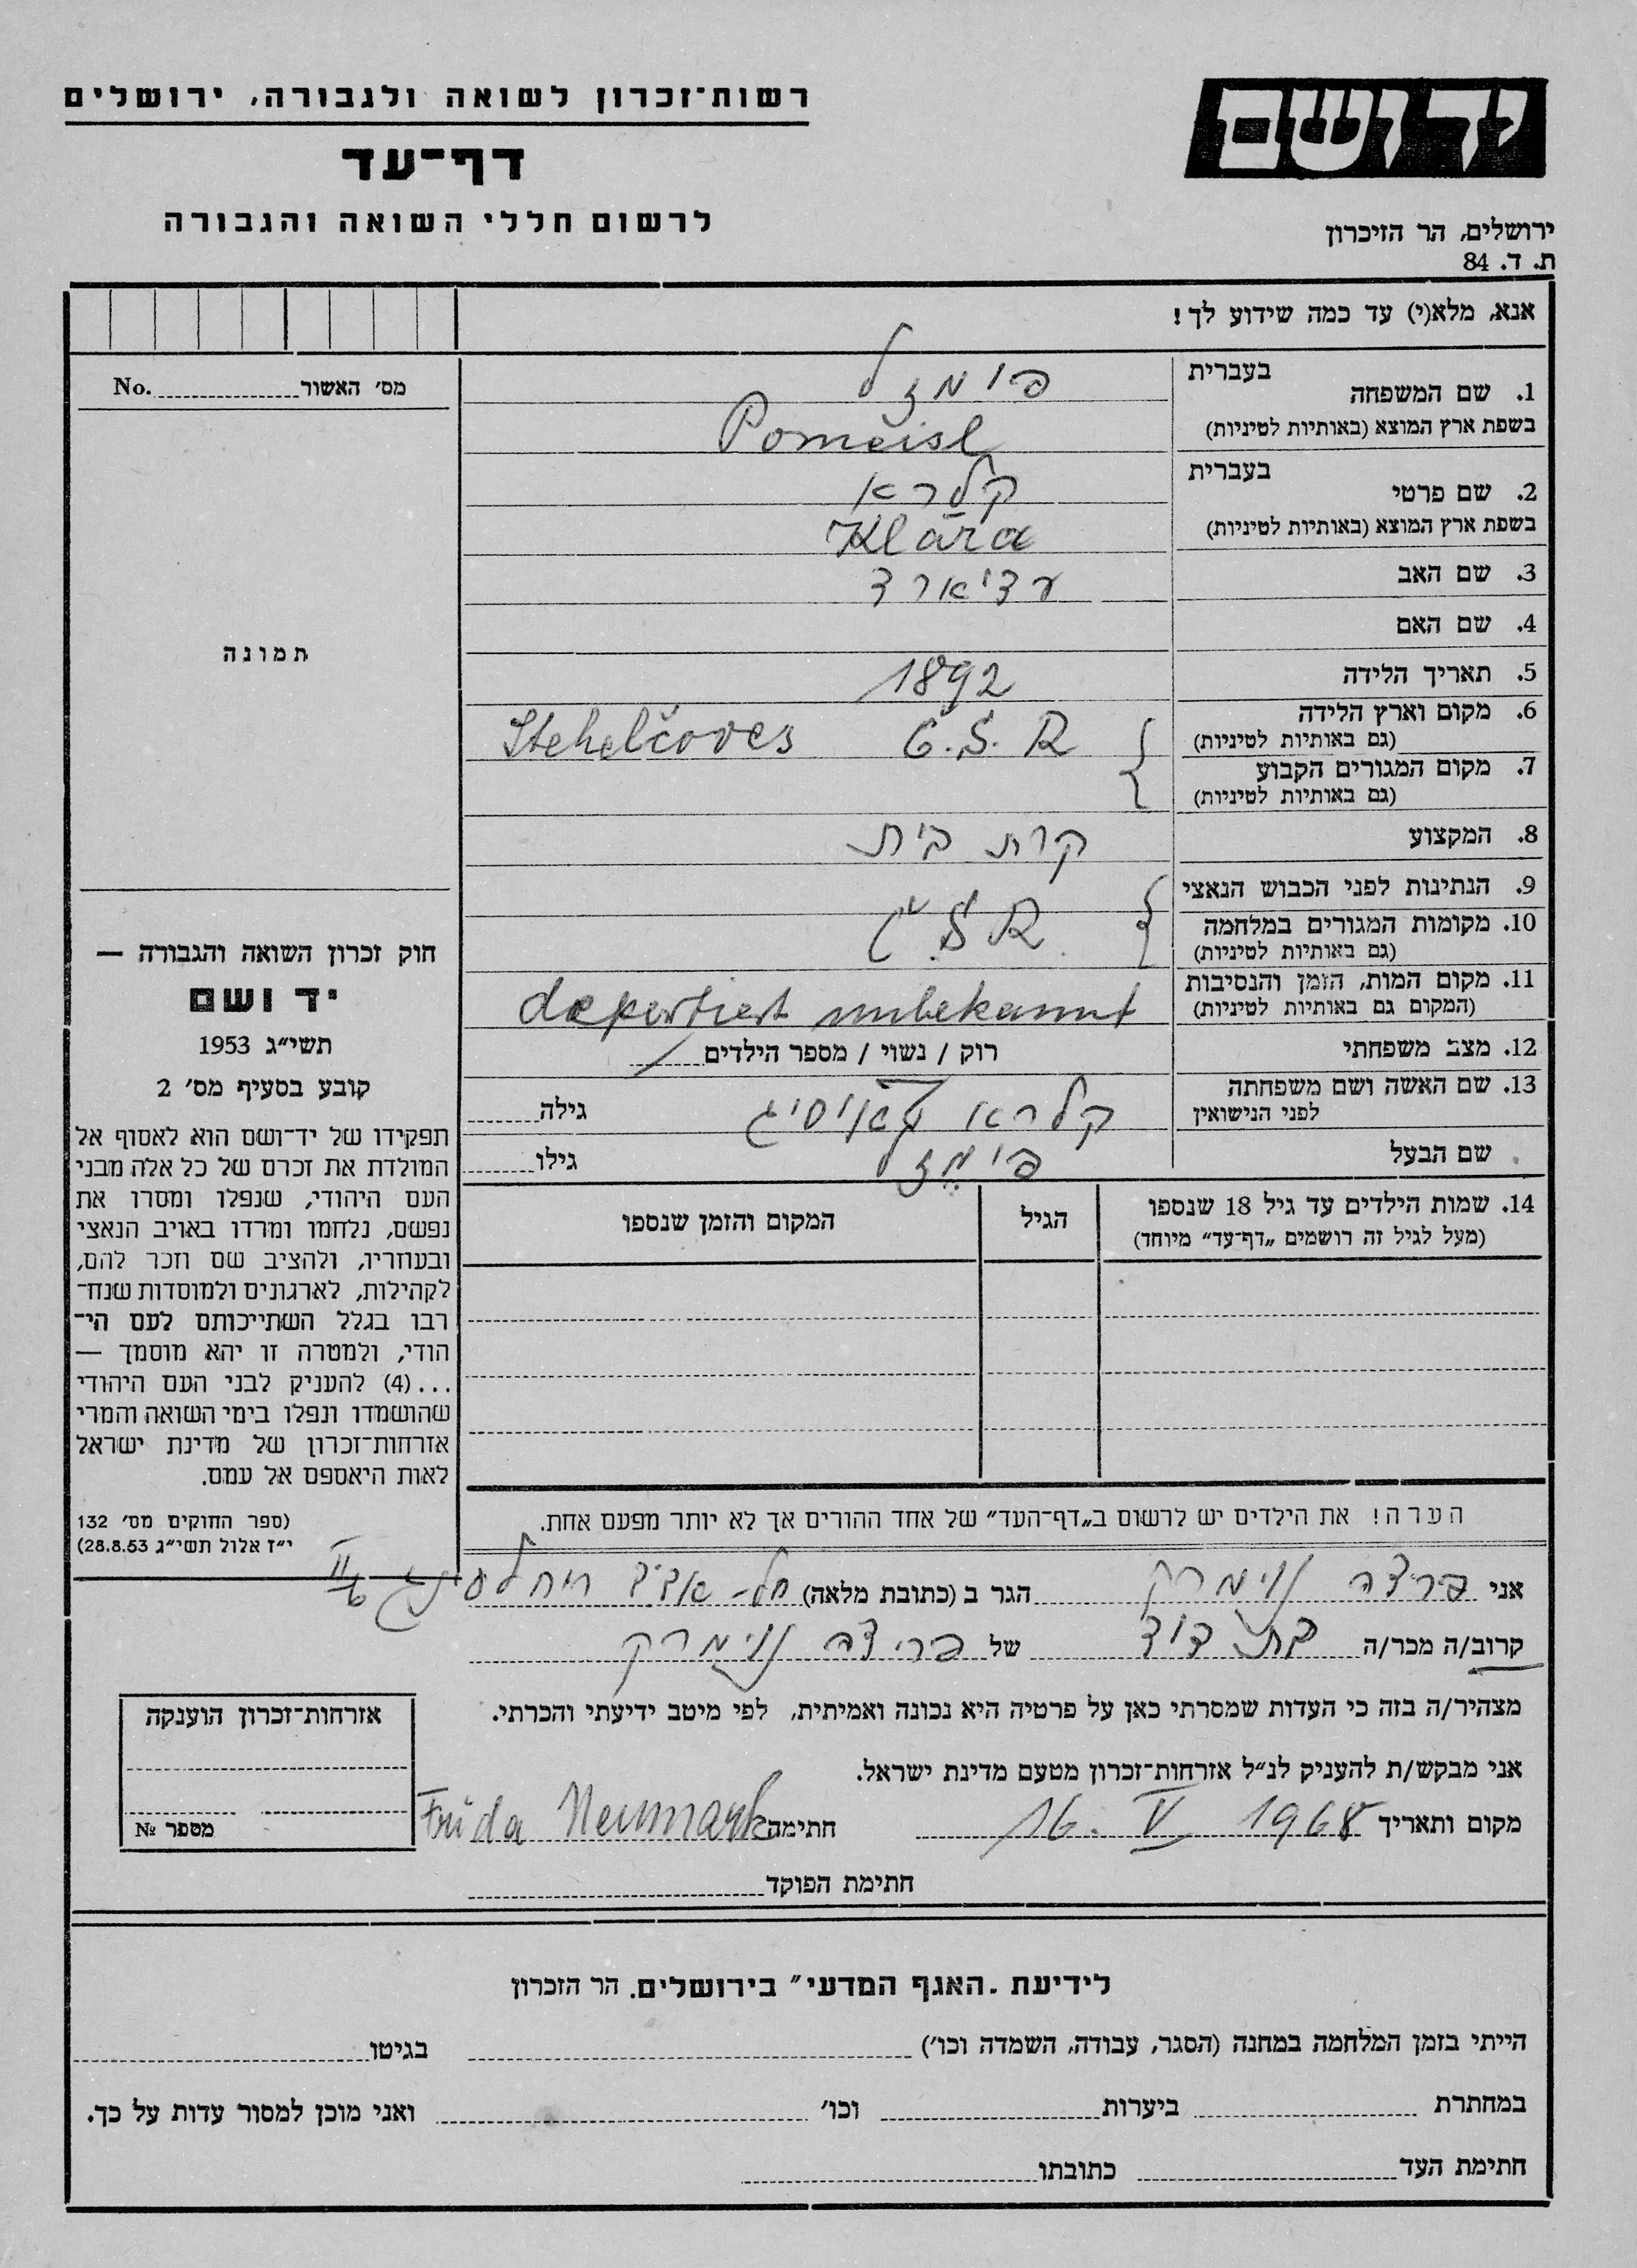 רשות־זכרון לשואה ולגבורה, ירושלים
דף־עד
לרשום חללי השואה והגבורה
יד ושם
ירושלים, הר הזיכרון
ת. ד. 84
אנא, מלא(י) עד כמה שידוע לך!
מס׳ האשור No.
תמונה
1. שם המשפחה בעברית פומזל
בשפת ארץ המוצא (באותיות לטיניות) Pomeisl
2. שם פרטי בעברית קלרא
בשפת ארץ המוצא (באותיות לטיניות) Klára
3. שם האב
4. שם האם
5. תאריך הלידה 1892
6. מקום וארץ הלידה Č.S.R Stehelčoves
(גם באותיות לטיניות)
7. מקום המגורים הקבוע
(גם באותיות לטיניות)
8. המקצוע קרת בית
9. הנתינות לפני הכבוש הנאצי
10. מקומות המגורים במלחמה Č.S.R.
(גם באותיות לטיניות)
11. מקום המות, הזמן והנסיבות deportiert unbekannt
(המקום גם באותיות לטיניות)
12. מצב משפחתי רוק / נשוי / מספר הילדים
13. שם האשה ושם משפחתה קלרא גילה
לפני הנישואין
שם הבעל פומזל גילו
14. שמות הילדים עד גיל 18 שנספו הגיל המקום והזמן שנספו
(מעל לגיל זה רושמים „דף־עד״ מיוחד)
חוק זכרון השואה והגבורה —
יד ושם
תשי״ג 1953
קובע בסעיף מס׳ 2
תפקידו של יד־ושם הוא לאסוף אל
המולדת את זכרם של כל אלה מבני
העם היהודי, שנפלו ומסרו את
נפשם, נלחמו ומרדו באויב הנאצי
ובעוזריו, ולהציב שם וזכר להם,
לקהילות, לארגונים ולמוסדות שנח־
רבו בגלל השתייכותם לעם הי־
הודי, ולמטרה זו יהא מוסמך —
...(4) להעניק לבני העם היהודי
שהושמדו ונפלו בימי השואה והמרי
אזרחות־זכרון של מדינת ישראל
לאות היאספם אל עמם.
(ספר החוקים מס׳ 132
י״ז אלול תשי״ג 28.8.53)
הערה! את הילדים יש לרשום ב„דף־העד״ של אחד ההורים אך לא יותר מפעם אחת.
אני פרידה נוימרק הגר ב (כתובת מלאה) תל-אביב
קרוב/ה מכר/ה בת דוד של פרידה נוימרק
מצהיר/ה בזה כי העדות שמסרתי כאן על פרטיה היא נכונה ואמיתית, לפי מיטב ידיעתי והכרתי.
אני מבקש/ת להעניק לנ״ל אזרחות־זכרון מטעם מדינת ישראל.
מקום ותאריך 16. V 1968 חתימה Frida Neumark
חתימת הפוקד
אזרחות־זכרון הוענקה
מספר №
לידיעת „האגף המדעי״ בירושלים. הר הזכרון
הייתי בזמן המלחמה במחנה (הסגר, עבודה, השמדה וכו׳) בגיטו
במחתרת ביערות וכו׳ ואני מוכן למסור עדות על כך.
חתימת העד כתובתו